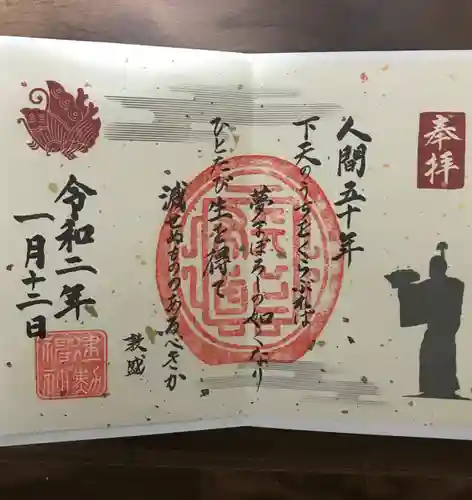 奉拝
人間五十年
下天のうちをくらぶれば
夢まぼろしの如くなり
ひとたび生を得て
滅せぬもののあるべきか
敦盛
令和二年
一月十二日
建勲